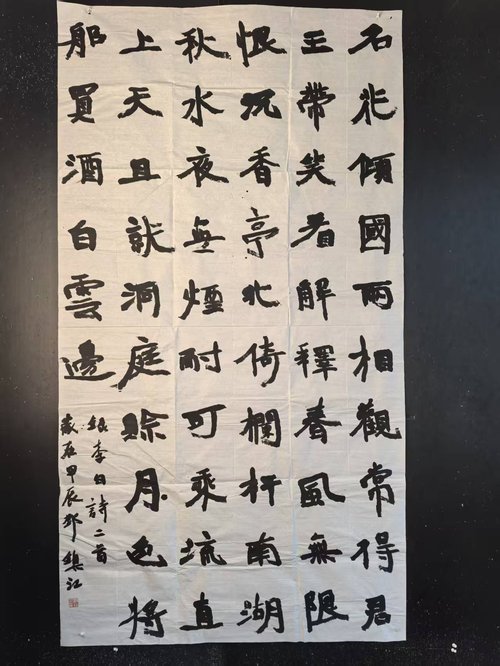 名花傾國兩相觀常得君
王帶笑看解釋春風無限
恨沉香亭北倚欄杆南湖
秋水夜無煙耐可乘流直
上天且就洞庭賒月色將
船買酒白雲邊
録李白詩二首
歲在甲辰鄧鎮江